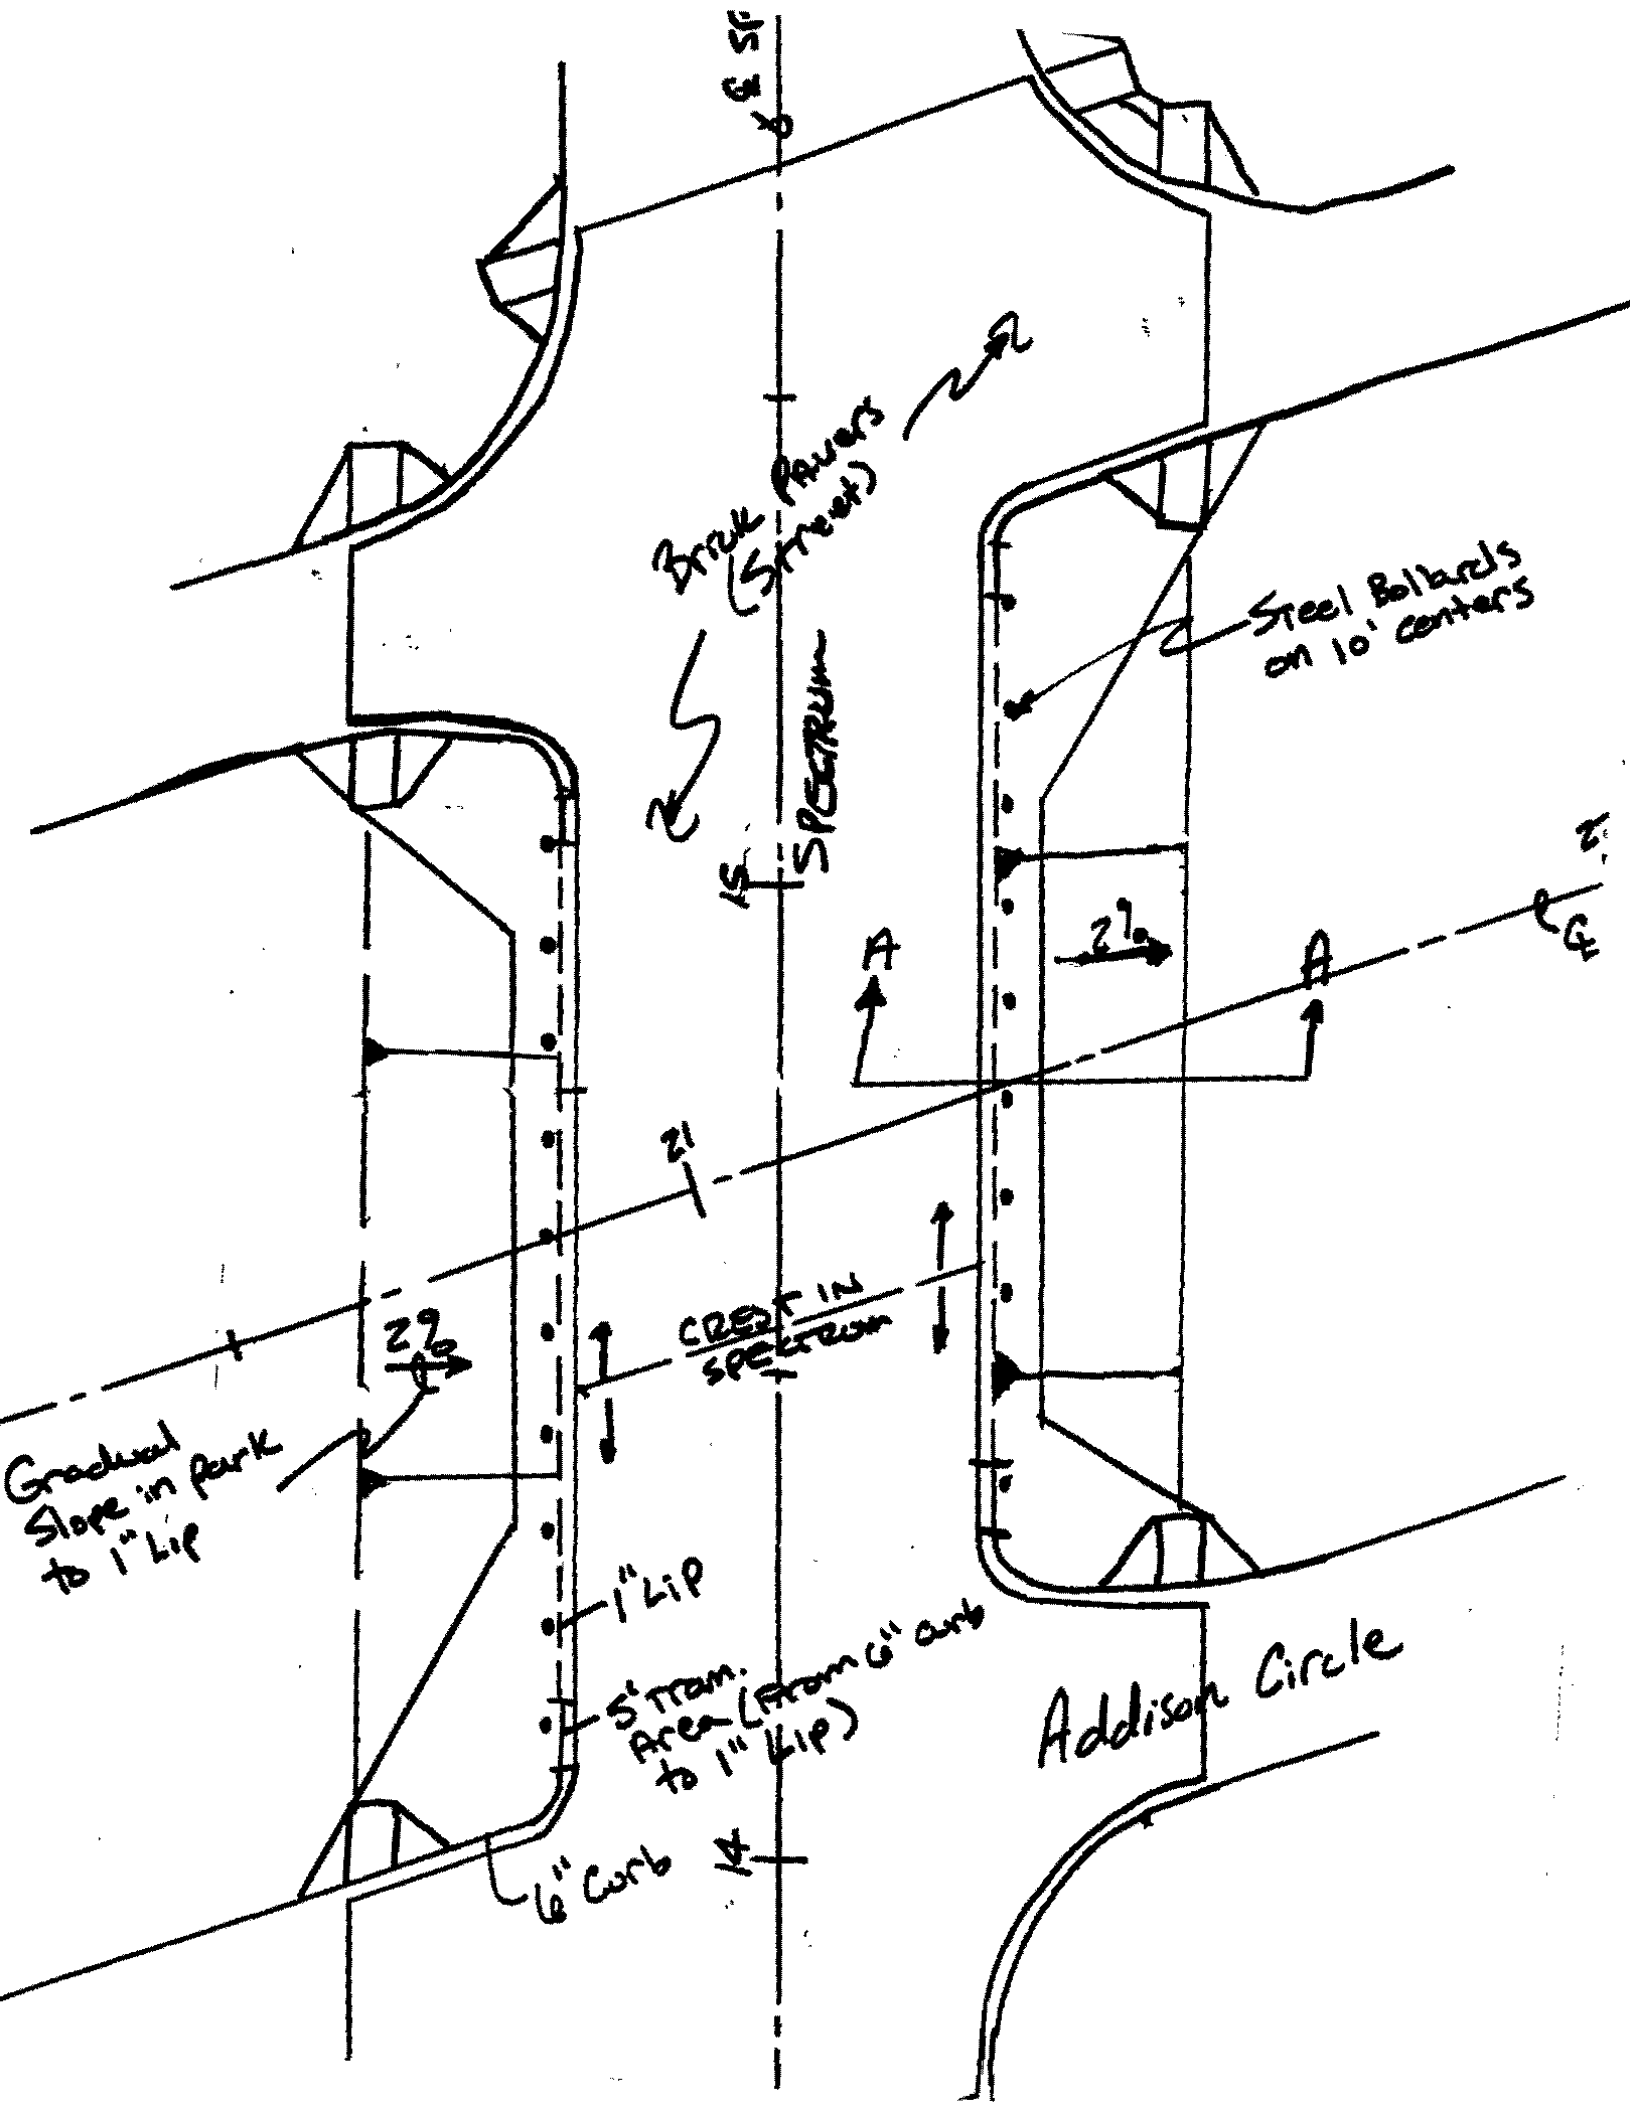 Brick Pavers
(Street)
Steel Bollards
on 10' centers
SPECTRUM
15
A
2%
A
21
CREST IN
SPECTRUM
2%
Gradual
Slope in park
to 1" Lip
1" Lip
5' Tran.
Area (From 6" curb
to 1" Lip)
6" Curb
14
Addison Circle